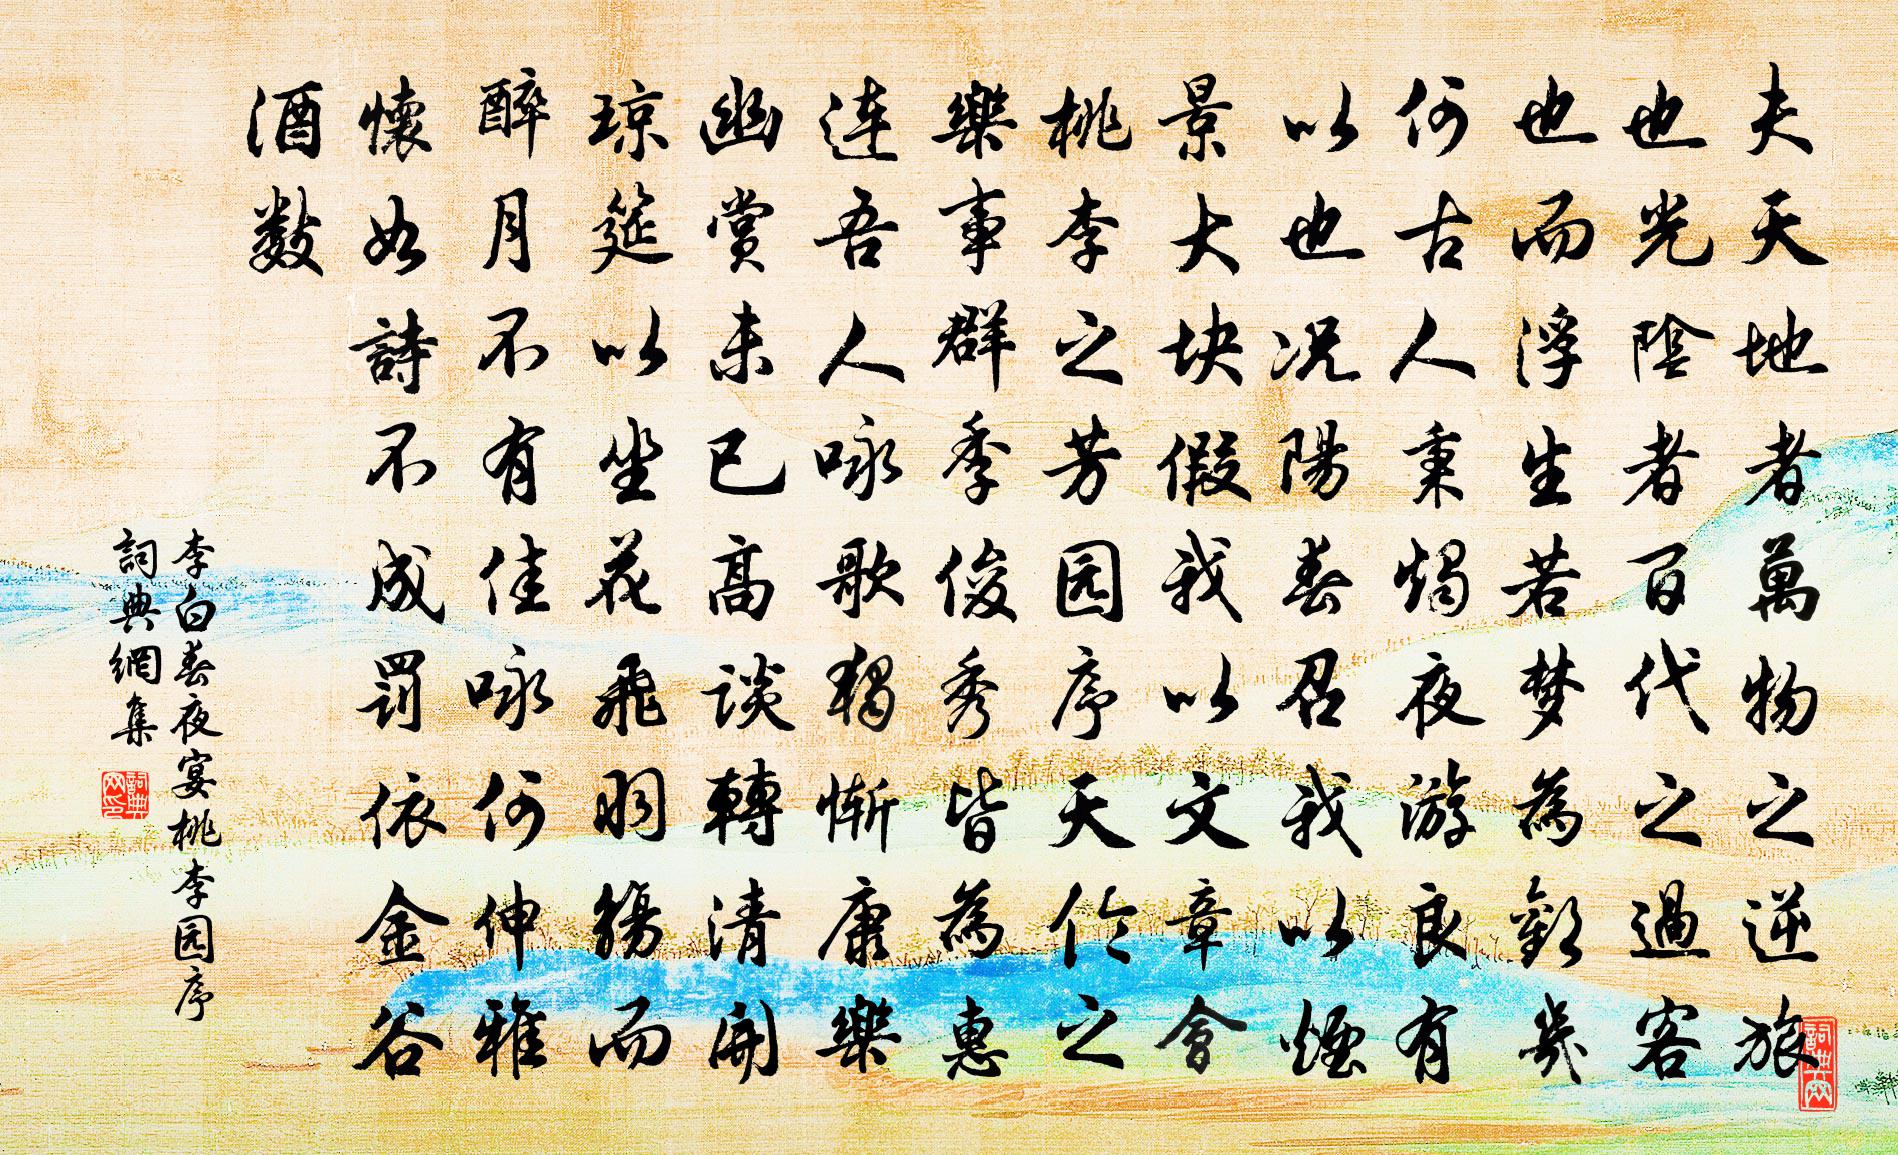 夫天地者萬物之逆旅
也光陰者百代之過客
也而浮生若梦為歡幾
何古人秉燭夜游良有
以也况陽春召我以煙
景大块假我以文章會
桃李之芳园序天伦之
樂事群季俊秀皆為惠
連吾人咏歌獨慚康樂
幽賞未已高談轉清開
琼筵以坐花飛羽觴而
醉月不有佳咏何伸雅
懷如詩不成罰依金谷
酒数
李白春夜宴桃李园序
詞典網集
詞典网印
詞典网